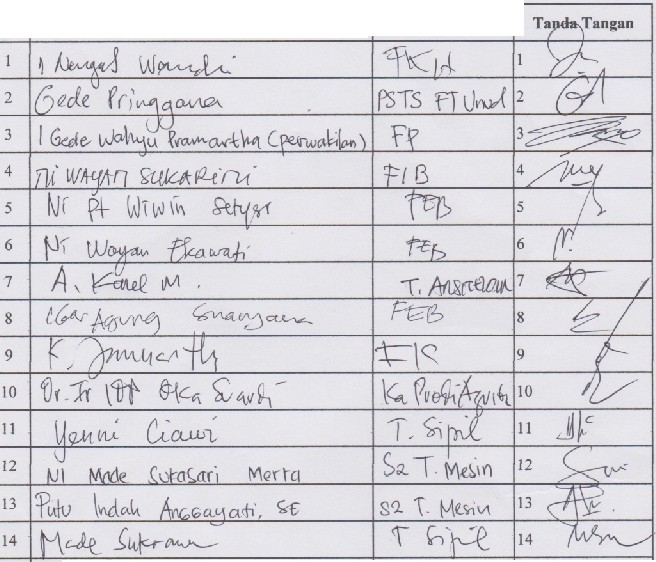 Tanda Tangan
1 I Nengah FKH 1
2 Gede Pringgana PSTS FT Unud 2
3 I Gede Wahyu Pramartha (perwakilan) FP 3
4 NI WAYAN SUKARINI FIB 4
5 Ni Pt Wiwin Setyari FEB 5
6 Ni Wayan Ekawati FEB 6
7 A. Karel M. T. 7
8 Agung FEB 8
9 K. Januartha FK 9
10 Dr. Ir IDP Oka Suardi Ka Prodi 10
11 Yenni Ciawi T. Sipil 11
12 NI Made Sukasari Merta S2 T. Mesin 12
13 Putu Indah Anggayati, SE S2 T. Mesin 13
14 Made Sukrawa T Sipil 14